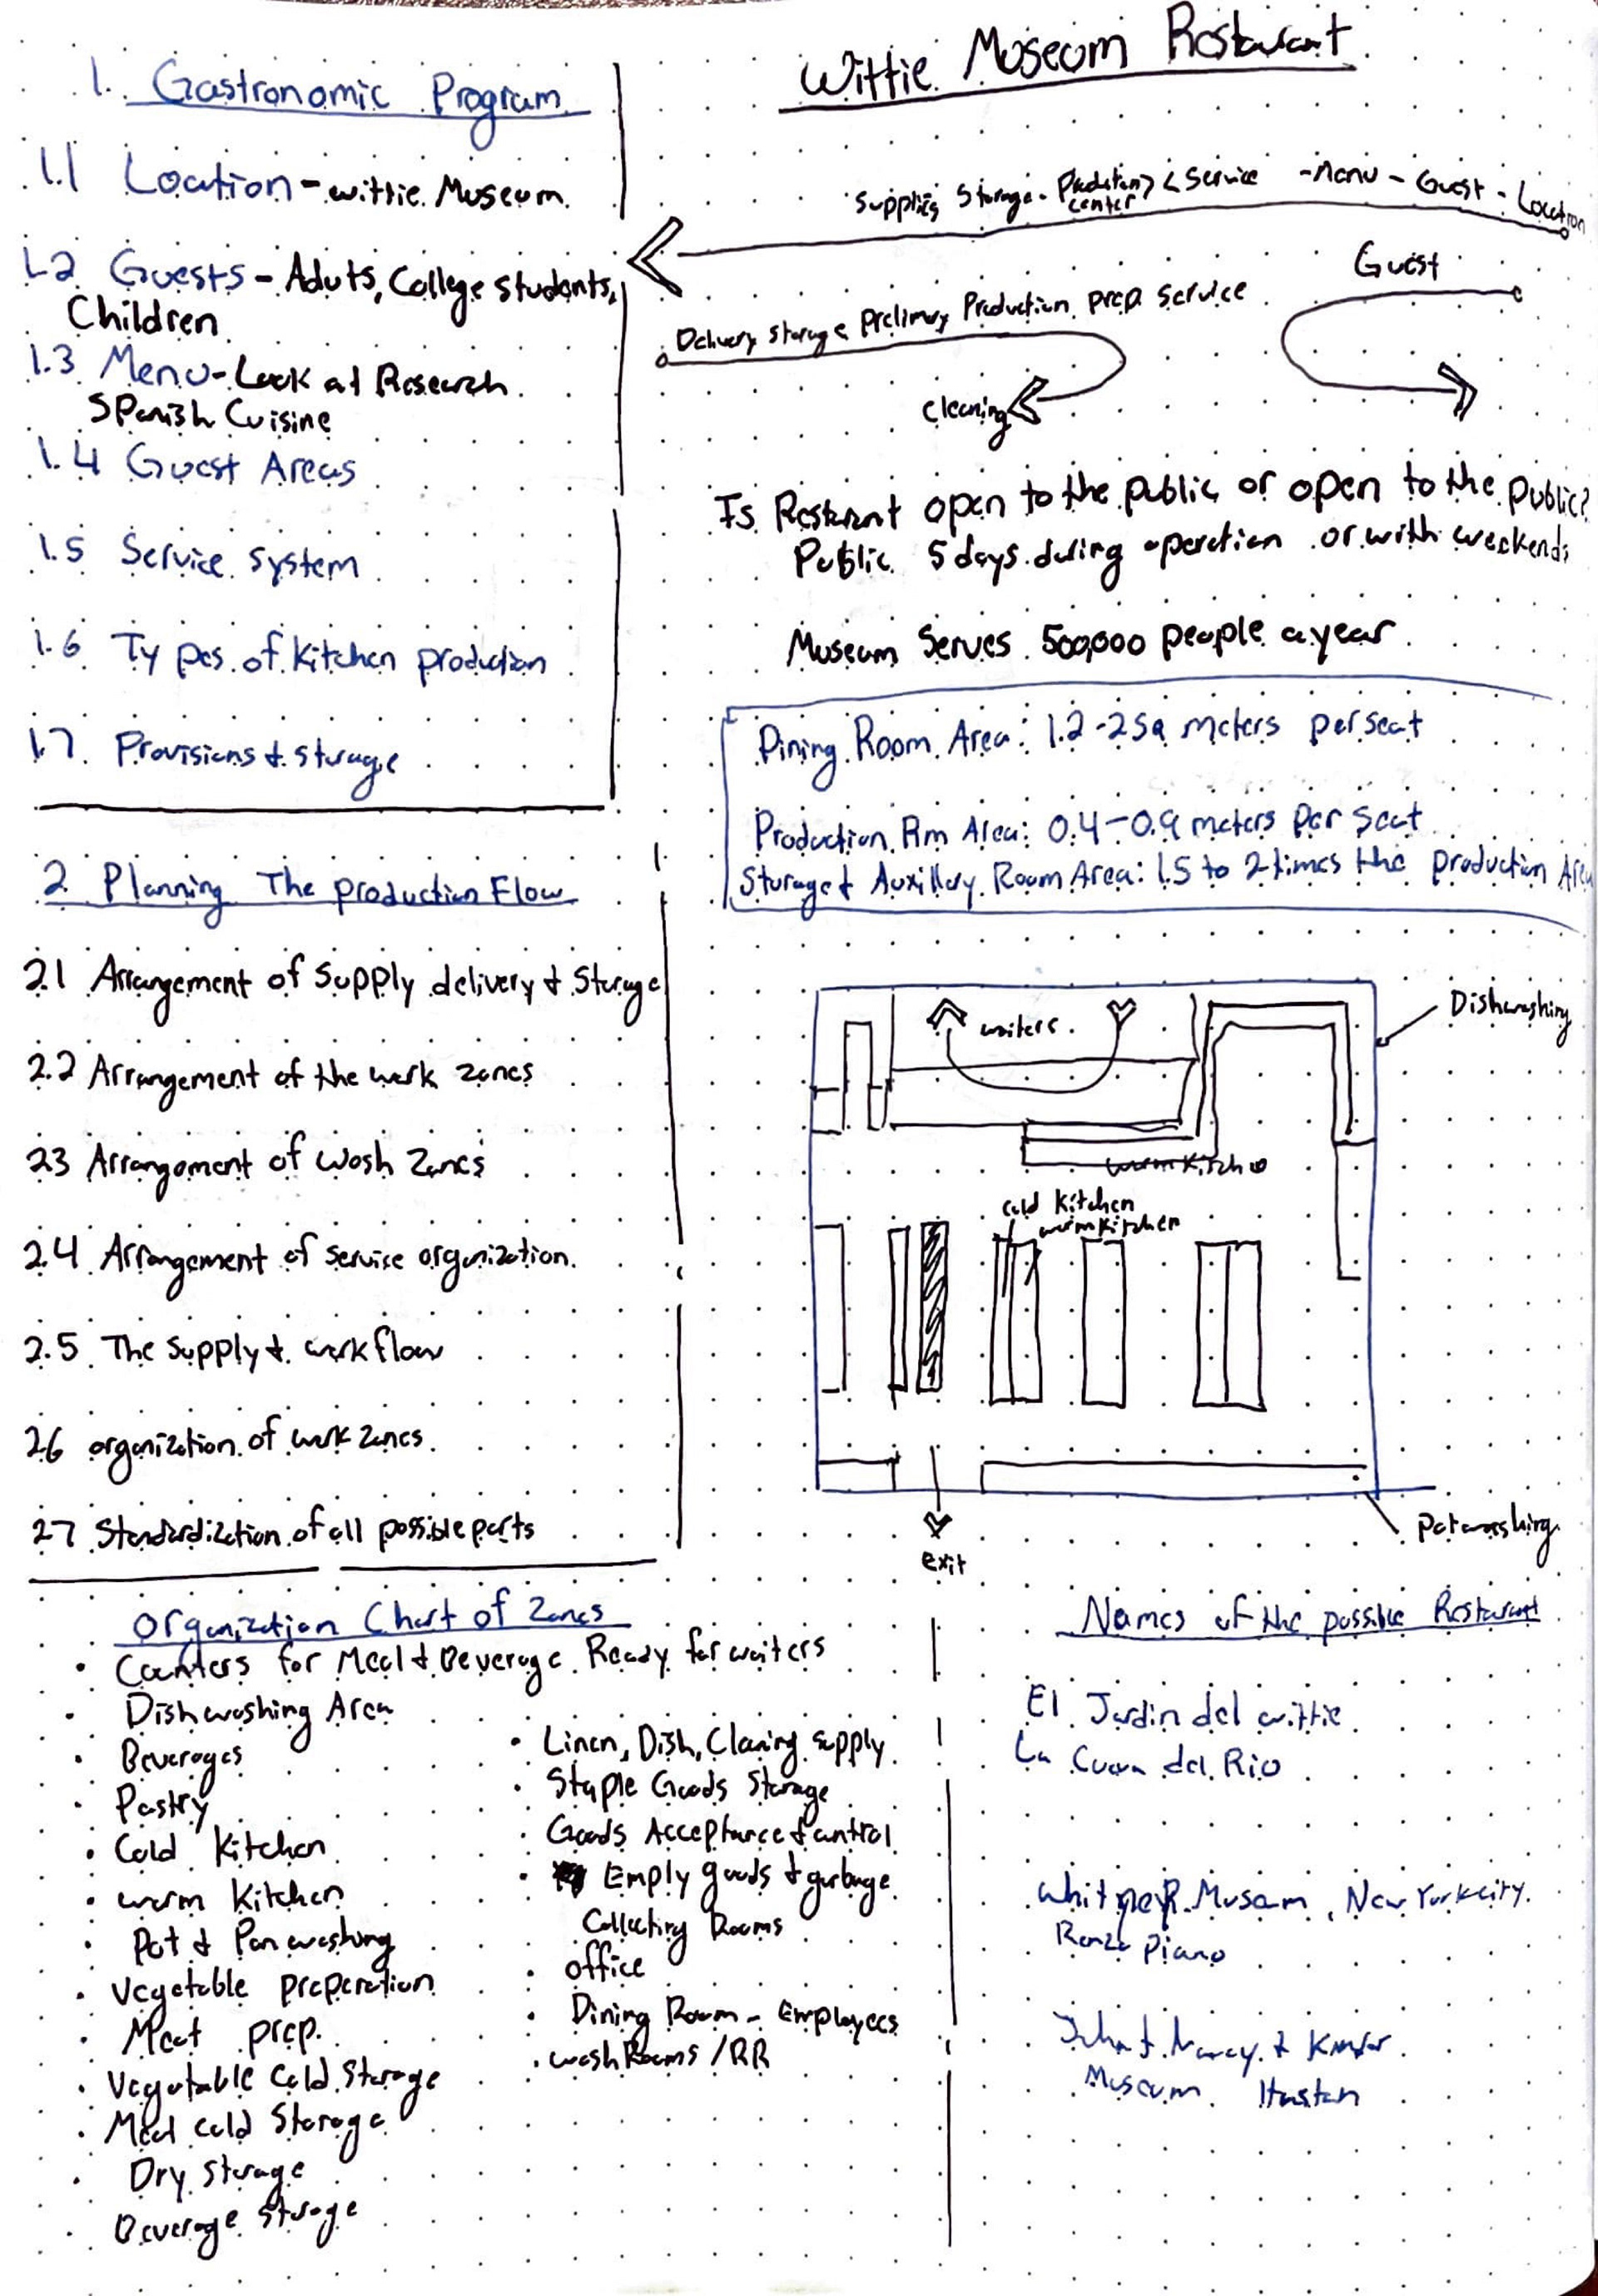 Wittie Museum Restaurant
1. Gastronomic Program
1.1 Location - Wittie Museum
1.2 Guests - Aduts, College students,
Children
1.3 Menu - Look at Research
Spanish Cuisine
1.4 Guest Areas
1.5 Service system
1.6 Types of Kitchen production
1.7 Provisions & storage
2 Planning The production Flow
2.1 Arrangement of Supply delivery & Storage
2.2 Arrangement of the work zones
2.3 Arrangement of Wosh Zones
2.4 Arrangement of service organization.
2.5 The supply & workflow
2.6 organization of work zones.
2.7 Standardization of all possible parts
Supplies Storage - Production > < Service - Menu - Guest - Location
center
Guest
Delivery storage Prelimry Production prep service
Cleaning
Is Resturant open to the public or open to the public?
Public 5 days during operation or with weekends
Museum Serves 500,000 people a year
Dining Room Area: 1.2 - 2 sq meters per seat
Production Rm Area: 0.4 - 0.9 meters per seat
Storage & Auxillary Room Area: 1.5 to 2 times the production Area
waiters
Dishwashing
warm Kitch
cold Kitchen
warm Kitchen
Potwashing
exit
Organization Chart of Zones
• Counters for Meal & Beverage Ready for waiters
• Dishwashing Area
• Beverages
• Pastry
• Cold Kitchen
• warm Kitchen
• Pot & Pan washing
• Vegetable preperation
• Meat prep.
• Vegatable Cold Storage
• Meat cold Storage
• Dry storage
• Beverage storage
• Linen, Dish, Claning supply
• Staple Goods Storage
• Goods Acceptance & control
• Empty goods & garbage
Collecting Rooms
• office
• Dining Room - Employees
• wash Rooms / RR
Names of the possible Resturant
El Jardin del wittie
La Cueva del Rio
Whitney Musem, New York city
Renzo Piano
Nancy &
Museum Huston